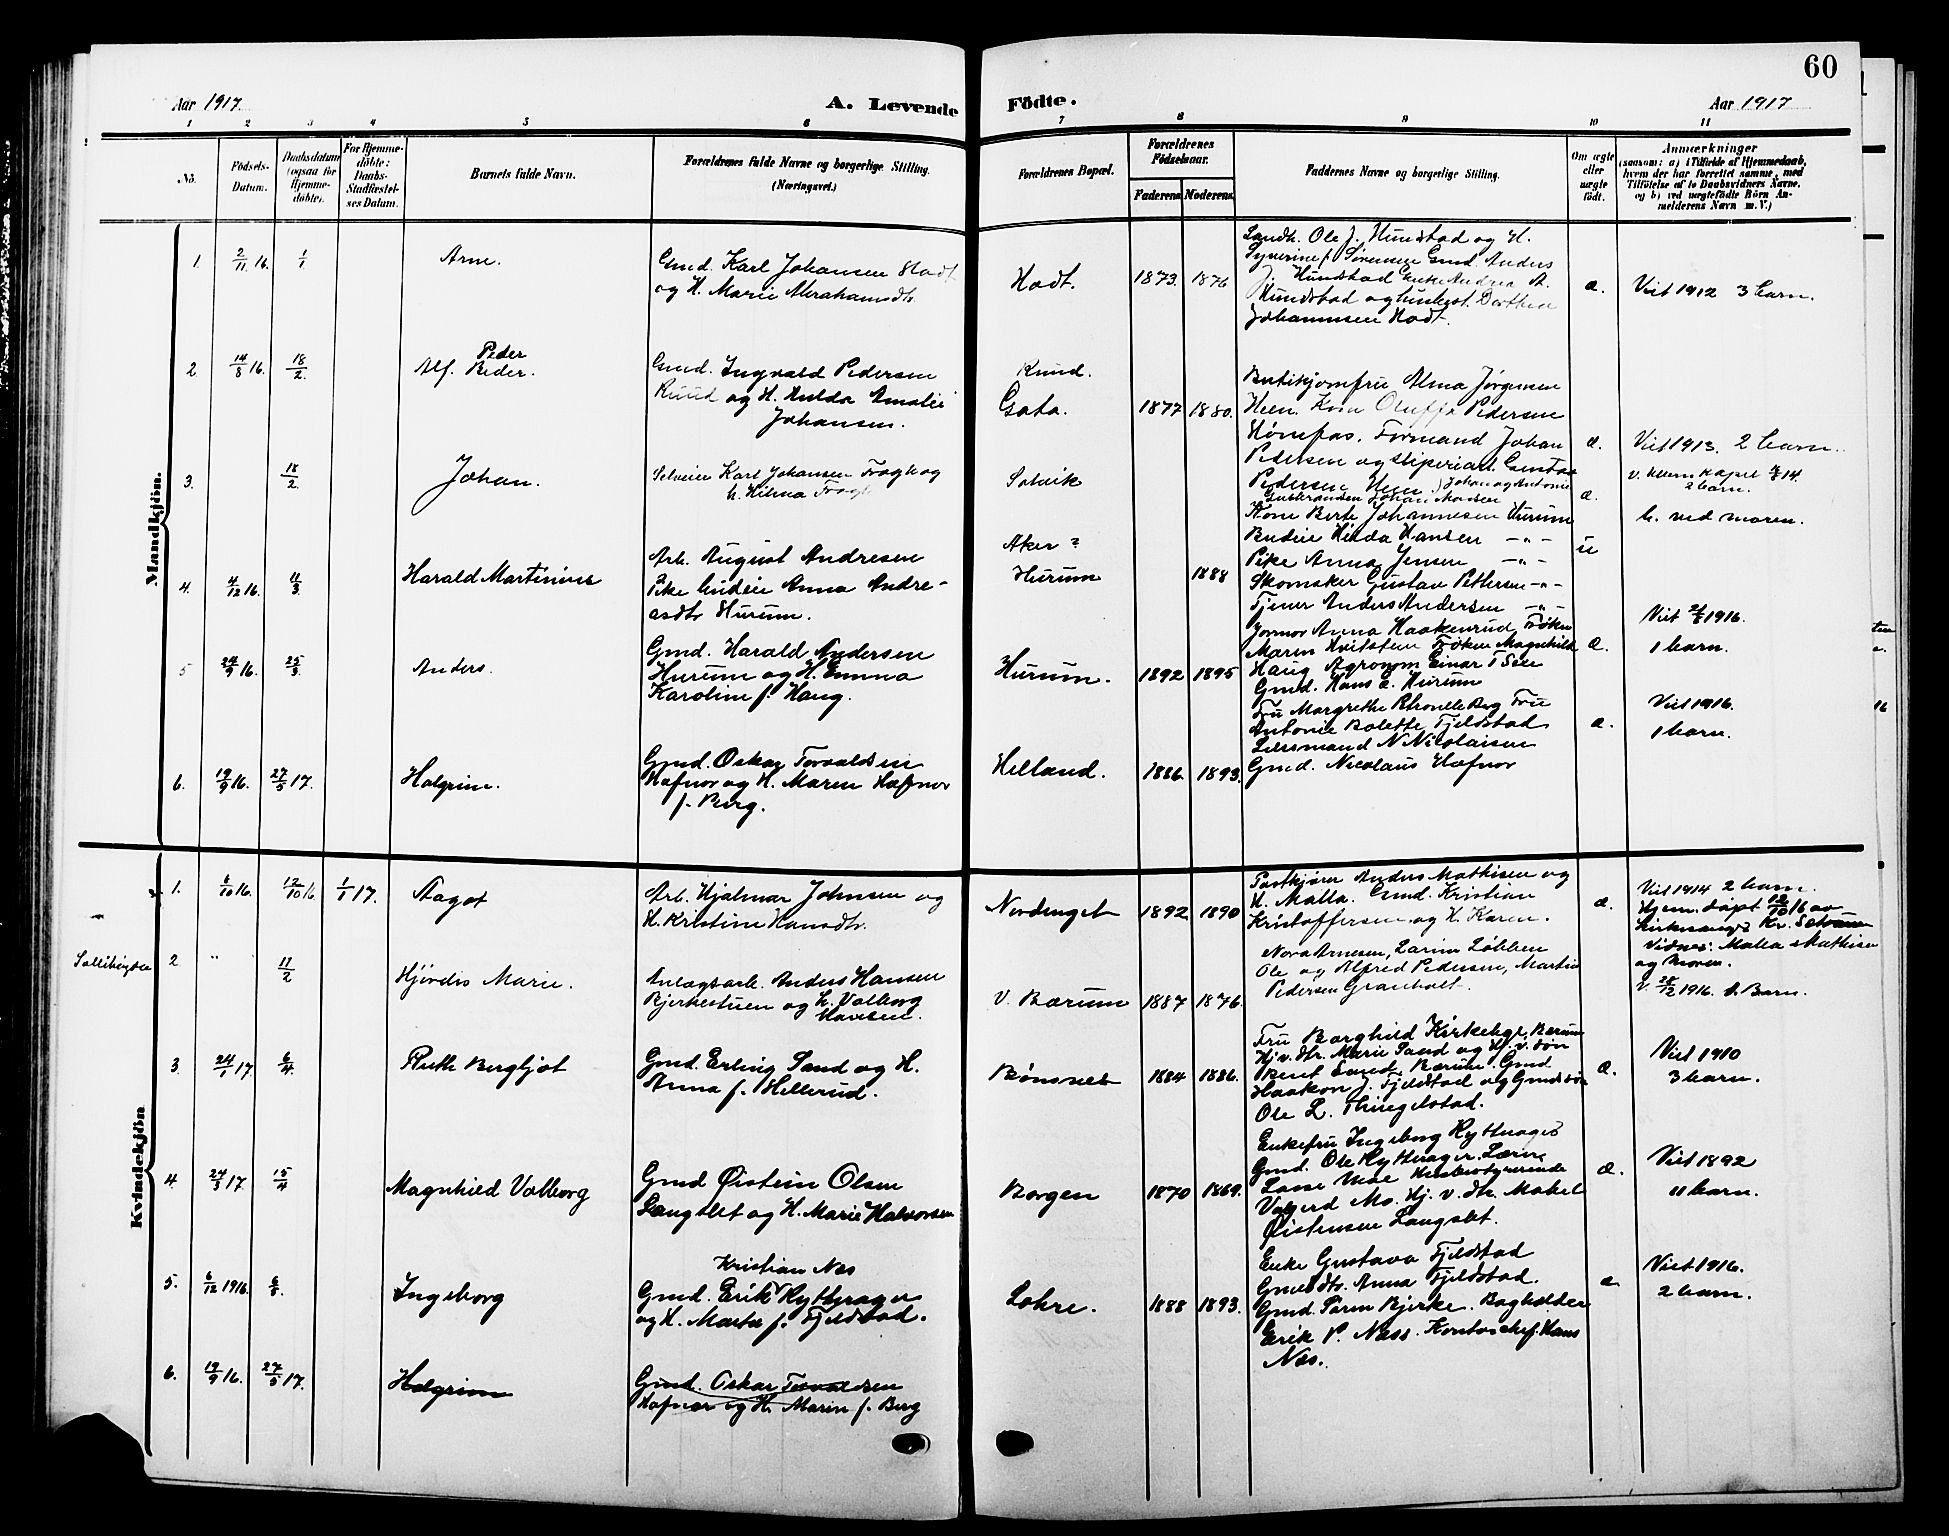 60
Aar 1917.
A. Levende
Födte.
Aar 1917
1 2 3 4 5 6 7 8 9 10 11
No.
Födsels-
Datum.
Daabsdatum
(ogsaa for
Hjemme-
döbte).
For Hjemme-
döbte:
Daabs-
Stadfæstel-
ses Datum.
Barnets fulde Navn.
Forældrenes fulde Navne og borgerlige Stilling.
(Næringsvei.)
Forældrenes Bopæl.
Forældrenes
Födselsaar.
Faderens
Moderens
Faddernes Navne og borgerlige Stilling.
Om ægte
eller
uægte
födt.
Anmærkninger
(saasom: a) i Tilfælde af Hjemmedaab,
hvem der har forrettet samme, med
Tilföielse af to Daabsvidners Navne,
og b) ved uægtefödte Börn An-
melderens Navn m. V.)
Mandkjön.
1. 2/11 16. 1/1
Arne.
Gmd. Karl Johansen Hadt
og H. Marie Abrahamsdtr.
Hadt.
1873. 1876
Landh. Ole J. Hundstad og H.
Syverine f. Sørensen Gmd. Anders
J. Hundstad Enke Andrea A.
Hundstad og husbest. Dorthea
Johannesen Hadt.
æ.
Viet 1912 3 barn.
2. 14/8 16. 18/2
Peder
Alf. Peder.
Gmd. Ingvald Pedersen
Ruud og H. Hulda Amalie
Johansen.
Ruud.
Gata.
1877 1880.
Butikjomfru Alma Jørgensen
Heen. Kone Olufja Pedersen
Hønefos. Formand Johan
Pedersen og sliperiarb. Gustav
Pedersen Heen
æ.
Viet 1913. 2 barn.
3. 18/2
Johan.
Selveier Karl Johansen Frogh og
h. Hilma Frogh
Solvik
Johan og Antonie
Gulbrandsen Johan Madsen
æ.
v. Ullern Kapel 14.
2 barn.
4. 4/12 16. 11/3
Harald Martinius
Arb. August Andresen
Pike budeie Anna Andre-
asdtr Hurum.
Aker?
Hurum
1888
Kone Berte Johannesen Hurum
Budeie Hilda Hansen -"-
Pike Anna Jensen -"-
Skomaker Gustav Pettersen -"-
Tjener Anders Andersen -"-
u
b. ved moren.
5 24/9 16. 25/3
Anders.
Gmd. Harald Andersen
Hurum og H. Emma
Karoline f. Haug.
Hurum.
1892 1895
Jormor Anna Haakenrud Frøken
Maren Hvitsten Frøken Magnhild
Haug Agronom Einar T Seie
Gmd. Hans A. Hurum
æ.
Viet 2/6 1916.
1 barn.
6. 19/9 16. 27/5 17.
Halgrim.
Gmd. Oskar Torvaldsen
Hafnor og H. Maren Hafnor
f. Berg.
Helland.
1886. 1893.
Fru Margrethe Berg Fru
Antonie Bolette Fjeldstad
Lensmand N Nicolaisen
Gmd. Nicolaus Hafnor
æ.
Viet 1916.
1 barn.
Kvindekjön
1. 6/10 16. 12/10 16. 1/1 17.
Aagot
Arb. Hjalmar Johnsen og
H. Kristine Hansdtr.
Nordenget
1892 1890
Postkjører Anders Mathisen og
H. Malla. Gmd. Kristian
Kristoffersen og H. Karen.
æ.
Viet 1914 2 barn.
Hjem. døpt 12/10 16 av
kirkesanger Kr.
Vidner: Malla Mathisen
og Moren.
Sollihøgda
2 " 11/2
Hjørdis Marie.
Anlægsarb. Anders Hansen
Bjerkestuen og h. Valborg
Hansen.
V. Bærum
1887 1876.
Nora Arnesen, Karine Løbben
Ole og Alfred Pedersen, Martin
Pedersen Granholt.
V. 28/12 1916. 1. Barn.
3. 24/1 17. 6/4
Ruth Bergljot
Gmd. Erling Sand og H.
Anna f. Hellerud.
Bønsnes
1884 1886.
Fru Borghild Kirkeby. Bærum
Hj. v. dtr. Marie Sand og Hj. v. søn
Bent Sand Bærum. Gmd
Haakon J. Fjeldstad og Gmds søn
Ole L. Thingelstad.
æ.
Viet 1910
3 barn.
4. 24/3 17. 15/4
Magnhild Valborg
Gmd Øistein Olsen
Langslet og H. Marie Halvorsen
Borgen
1870 1869.
Enkefru Ingeborg Rytterager
Gmd. Ole Rytterager. Lærer
Lasse Moe Husbestyrerinde
Valgerd Mo. Hj. v. dtr. Mabel
Øistensen Langslet.
æ.
Viet 1892
11 barn.
5. 6/12 1916. 6/5.
Ingeborg
Kristian Næs
Gmd. Erik Rytterager
og H. Marta f. Fjeldstad.
Lohre.
1888 1893.
Enke Gustava Fjeldstad
Gmds dtr. Anna Fjeldstad.
Gmd. Paren Bjerke. Bogholder
Erik P. Næss. Kontorchef. Hans
Næs.
æ.
Viet 1916.
2 barn.
6. 19/9 16. 27/5 17.
Halgrim
Gmd. Oskar Torvaldsen
Hafnor og H. Maren f. Berg